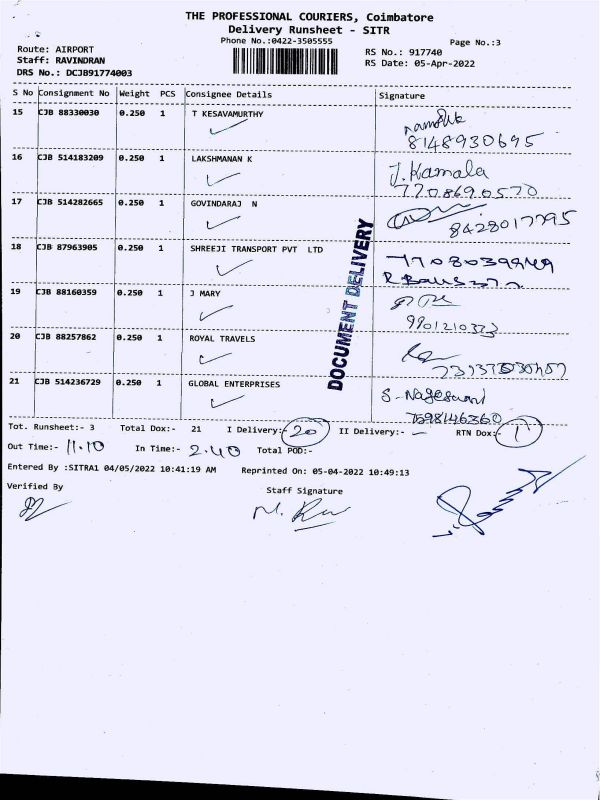 THE PROFESSIONAL COURIERS, Coimbatore
Delivery Runsheet - SITR
Phone No.:0422-3505555
Page No.:3
Route: AIRPORT
Staff: RAVINDRAN
DRS No.: DCJB91774003
RS No.: 917740
RS Date: 05-Apr-2022
S No Consignment No Weight PCS Consignee Details Signature
15 CJB 88330030 0.250 1 T KESAVAMURTHY
8148930695
16 CJB 514183209 0.250 1 LAKSHMANAN K J.Kamala
7708690570
17 CJB 514282665 0.250 1 GOVINDARAJ N
8428017795
18 CJB 87963905 0.250 1 SHREEJI TRANSPORT PVT LTD
19 CJB 88160359 0.250 1 J MARY
9901210333
20 CJB 88257862 0.250 1 ROYAL TRAVELS
21 CJB 514236729 0.250 1 GLOBAL ENTERPRISES
7598146360
DOCUMENT DELIVERY
Tot. Runsheet:- 3 Total Dox:- 21 I Delivery:- 20 II Delivery:- - RTN Dox:- 1
Out Time:- 11.10 In Time:- 2.40 Total POD:-
Entered By :SITRA1 04/05/2022 10:41:19 AM Reprinted On: 05-04-2022 10:49:13
Verified By
Staff Signature